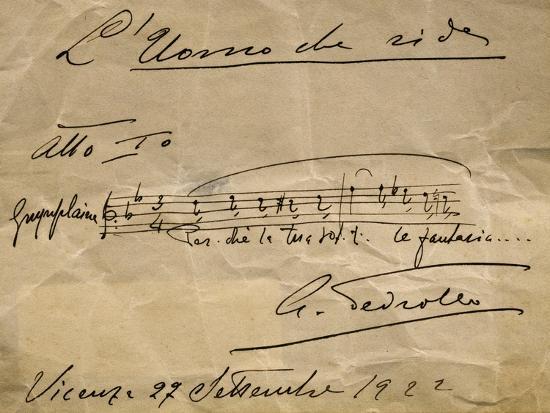 L'Uomo che ride
Atto I°
Gwynplaine
3
4
Per. chè la tua le fantasia....
A. Pedrollo
Vicenza 27 Settembre 1922